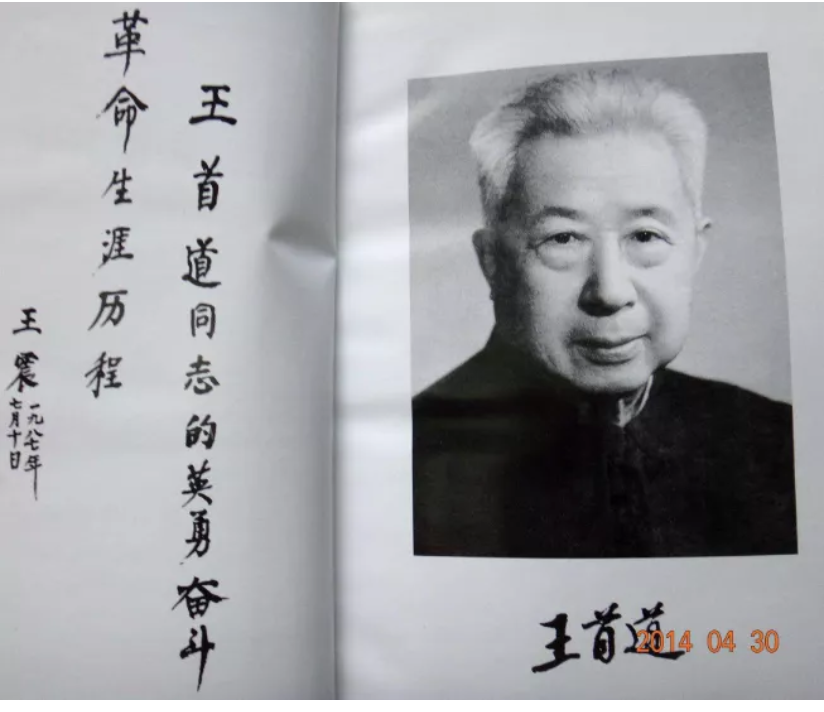 王首道同志的英勇奋斗
革命生涯历程
王震
一九八七年
七月十日
王首道
2014 04 30